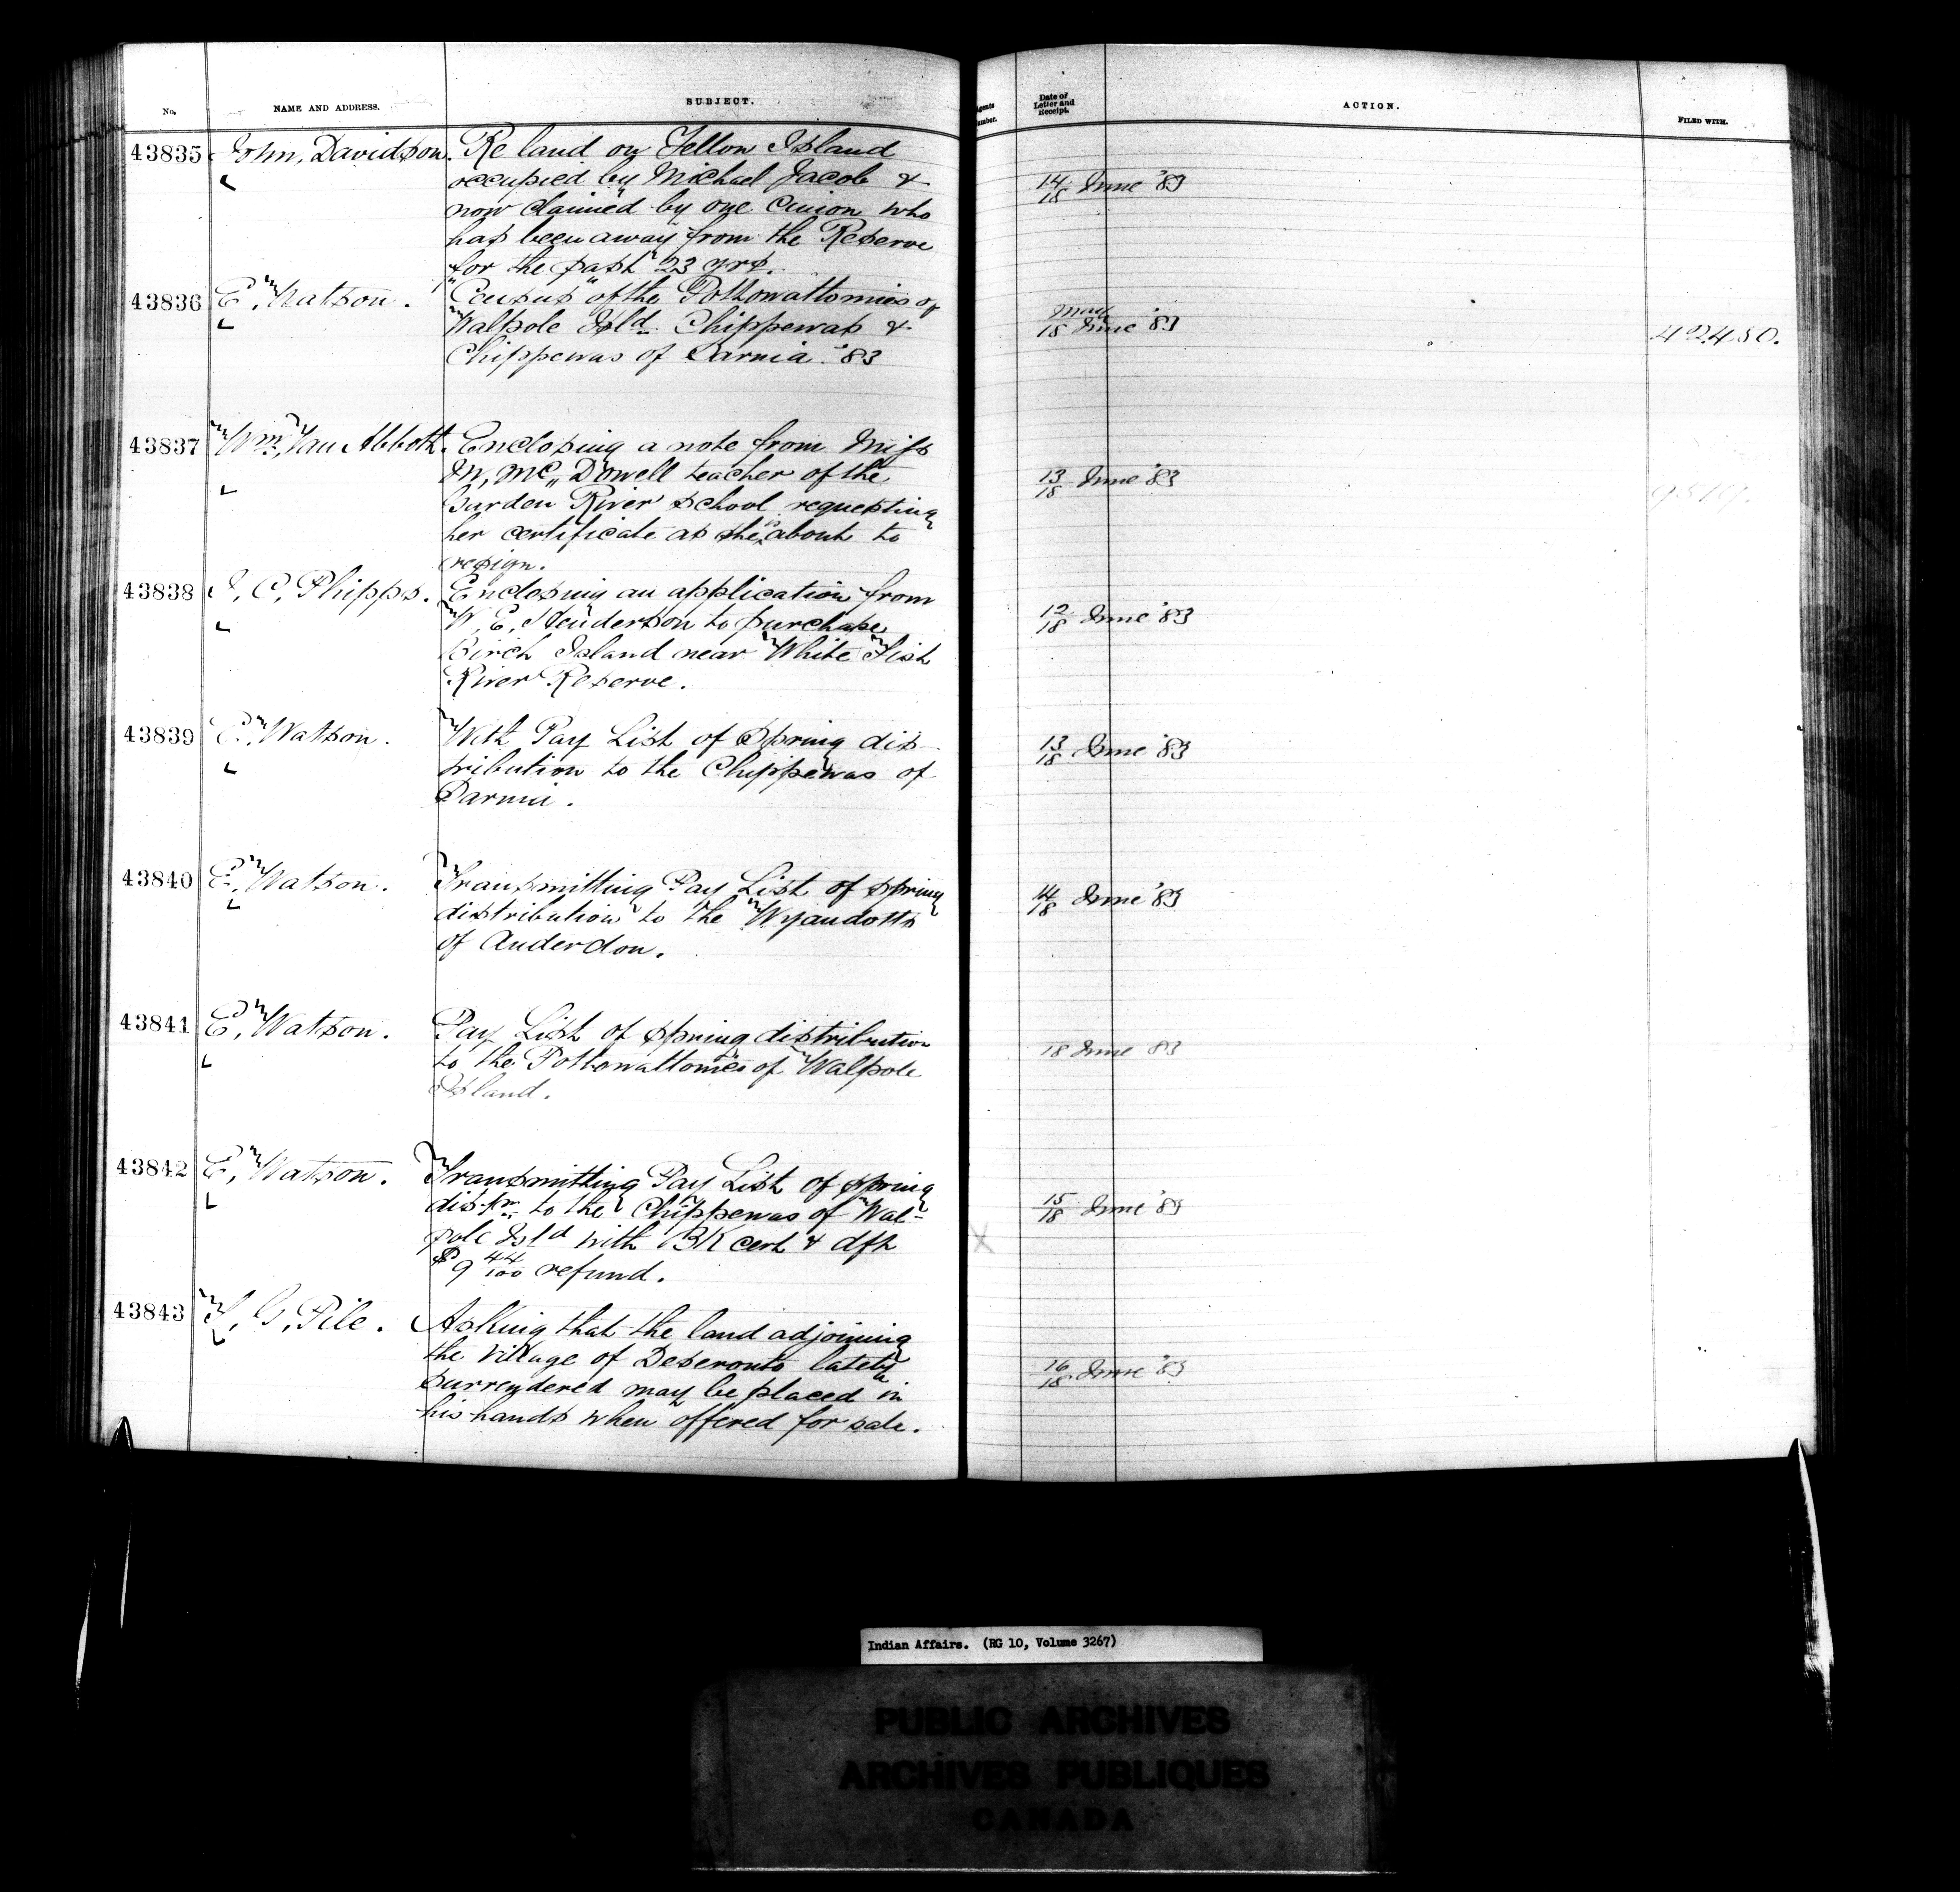 No. NAME AND ADDRESS. SUBJECT. Agents Number. Date of Letter and Receipt. ACTION. FILED WITH.
43835 John Davidson. Re land on Yellow Island
occupied by Michael Jacob & 14/18 June '83
now claimed by one who
has been away from the Reserve
for the past 23 yrs.
43836 E. Watson. "Census" of the Pottowattomies of
Walpole Isld. Chippewas & May 18 June '83 42450.
Chippewas of Sarnia '83
43837 Wm. Van Abbott. Enclosing a note from Miss
M, Mc,, Dowell teacher of the 13/18 June '83
Garden River school requesting
her certificate as she is about to
resign.
43838 J. C. Phipps. Enclosing an application from
W. E. Henderson to purchase 12/18 June '83
Birch Island near White Fish
River Reserve.
43839 E. Watson. With Pay List of Spring dis-
tribution to the Chippewas of 13/18 June '83
Sarnia.
43840 E. Watson. Transmitting Pay List of spring
distribution to the Wyandotts 14/18 June '83
of Anderdon.
43841 E. Watson. Pay List of spring distribution
to the Pottowattomies of Walpole 18 June 83
Island.
43842 E, Watson. Transmitting Pay List of spring
dis-tn. to the Chippewas of Wal- 15/18 June '83
pole Isld with BK cert & dft
$9 44/100 refund.
43843 T. G. Pile. Asking that the land adjoining
the village of Deseronto lately 16/18 June '83
surrendered may be placed in
his hands when offered for sale.
Indian Affairs. (RG 10, Volume 3267)
PUBLIC ARCHIVES
ARCHIVES PUBLIQUES
CANADA